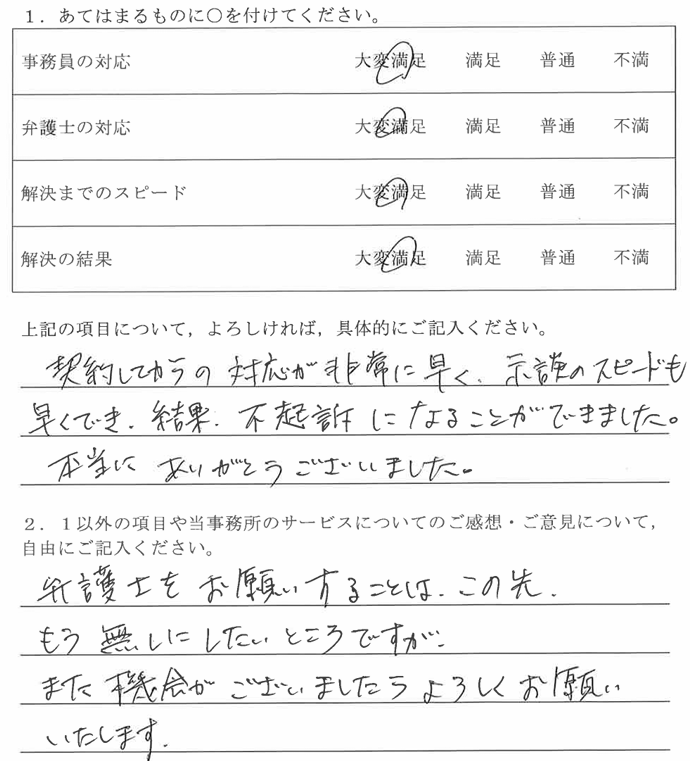 1．あてはまるものに○を付けてください。
事務員の対応 大変満足 満足 普通 不満
弁護士の対応 大変満足 満足 普通 不満
解決までのスピード 大変満足 満足 普通 不満
解決の結果 大変満足 満足 普通 不満
上記の項目について，よろしければ，具体的にご記入ください。
契約してからの対応が非常に早く、示談のスピードも
早くでき、結果、不起訴になることができました。
本当にありがとうございました。
2．1以外の項目や当事務所のサービスについてのご感想・ご意見について，
自由にご記入ください。
弁護士をお願いすることは、この先、
もう無しにしたいところですが、
また機会がございましたらよろしくお願い
いたします。